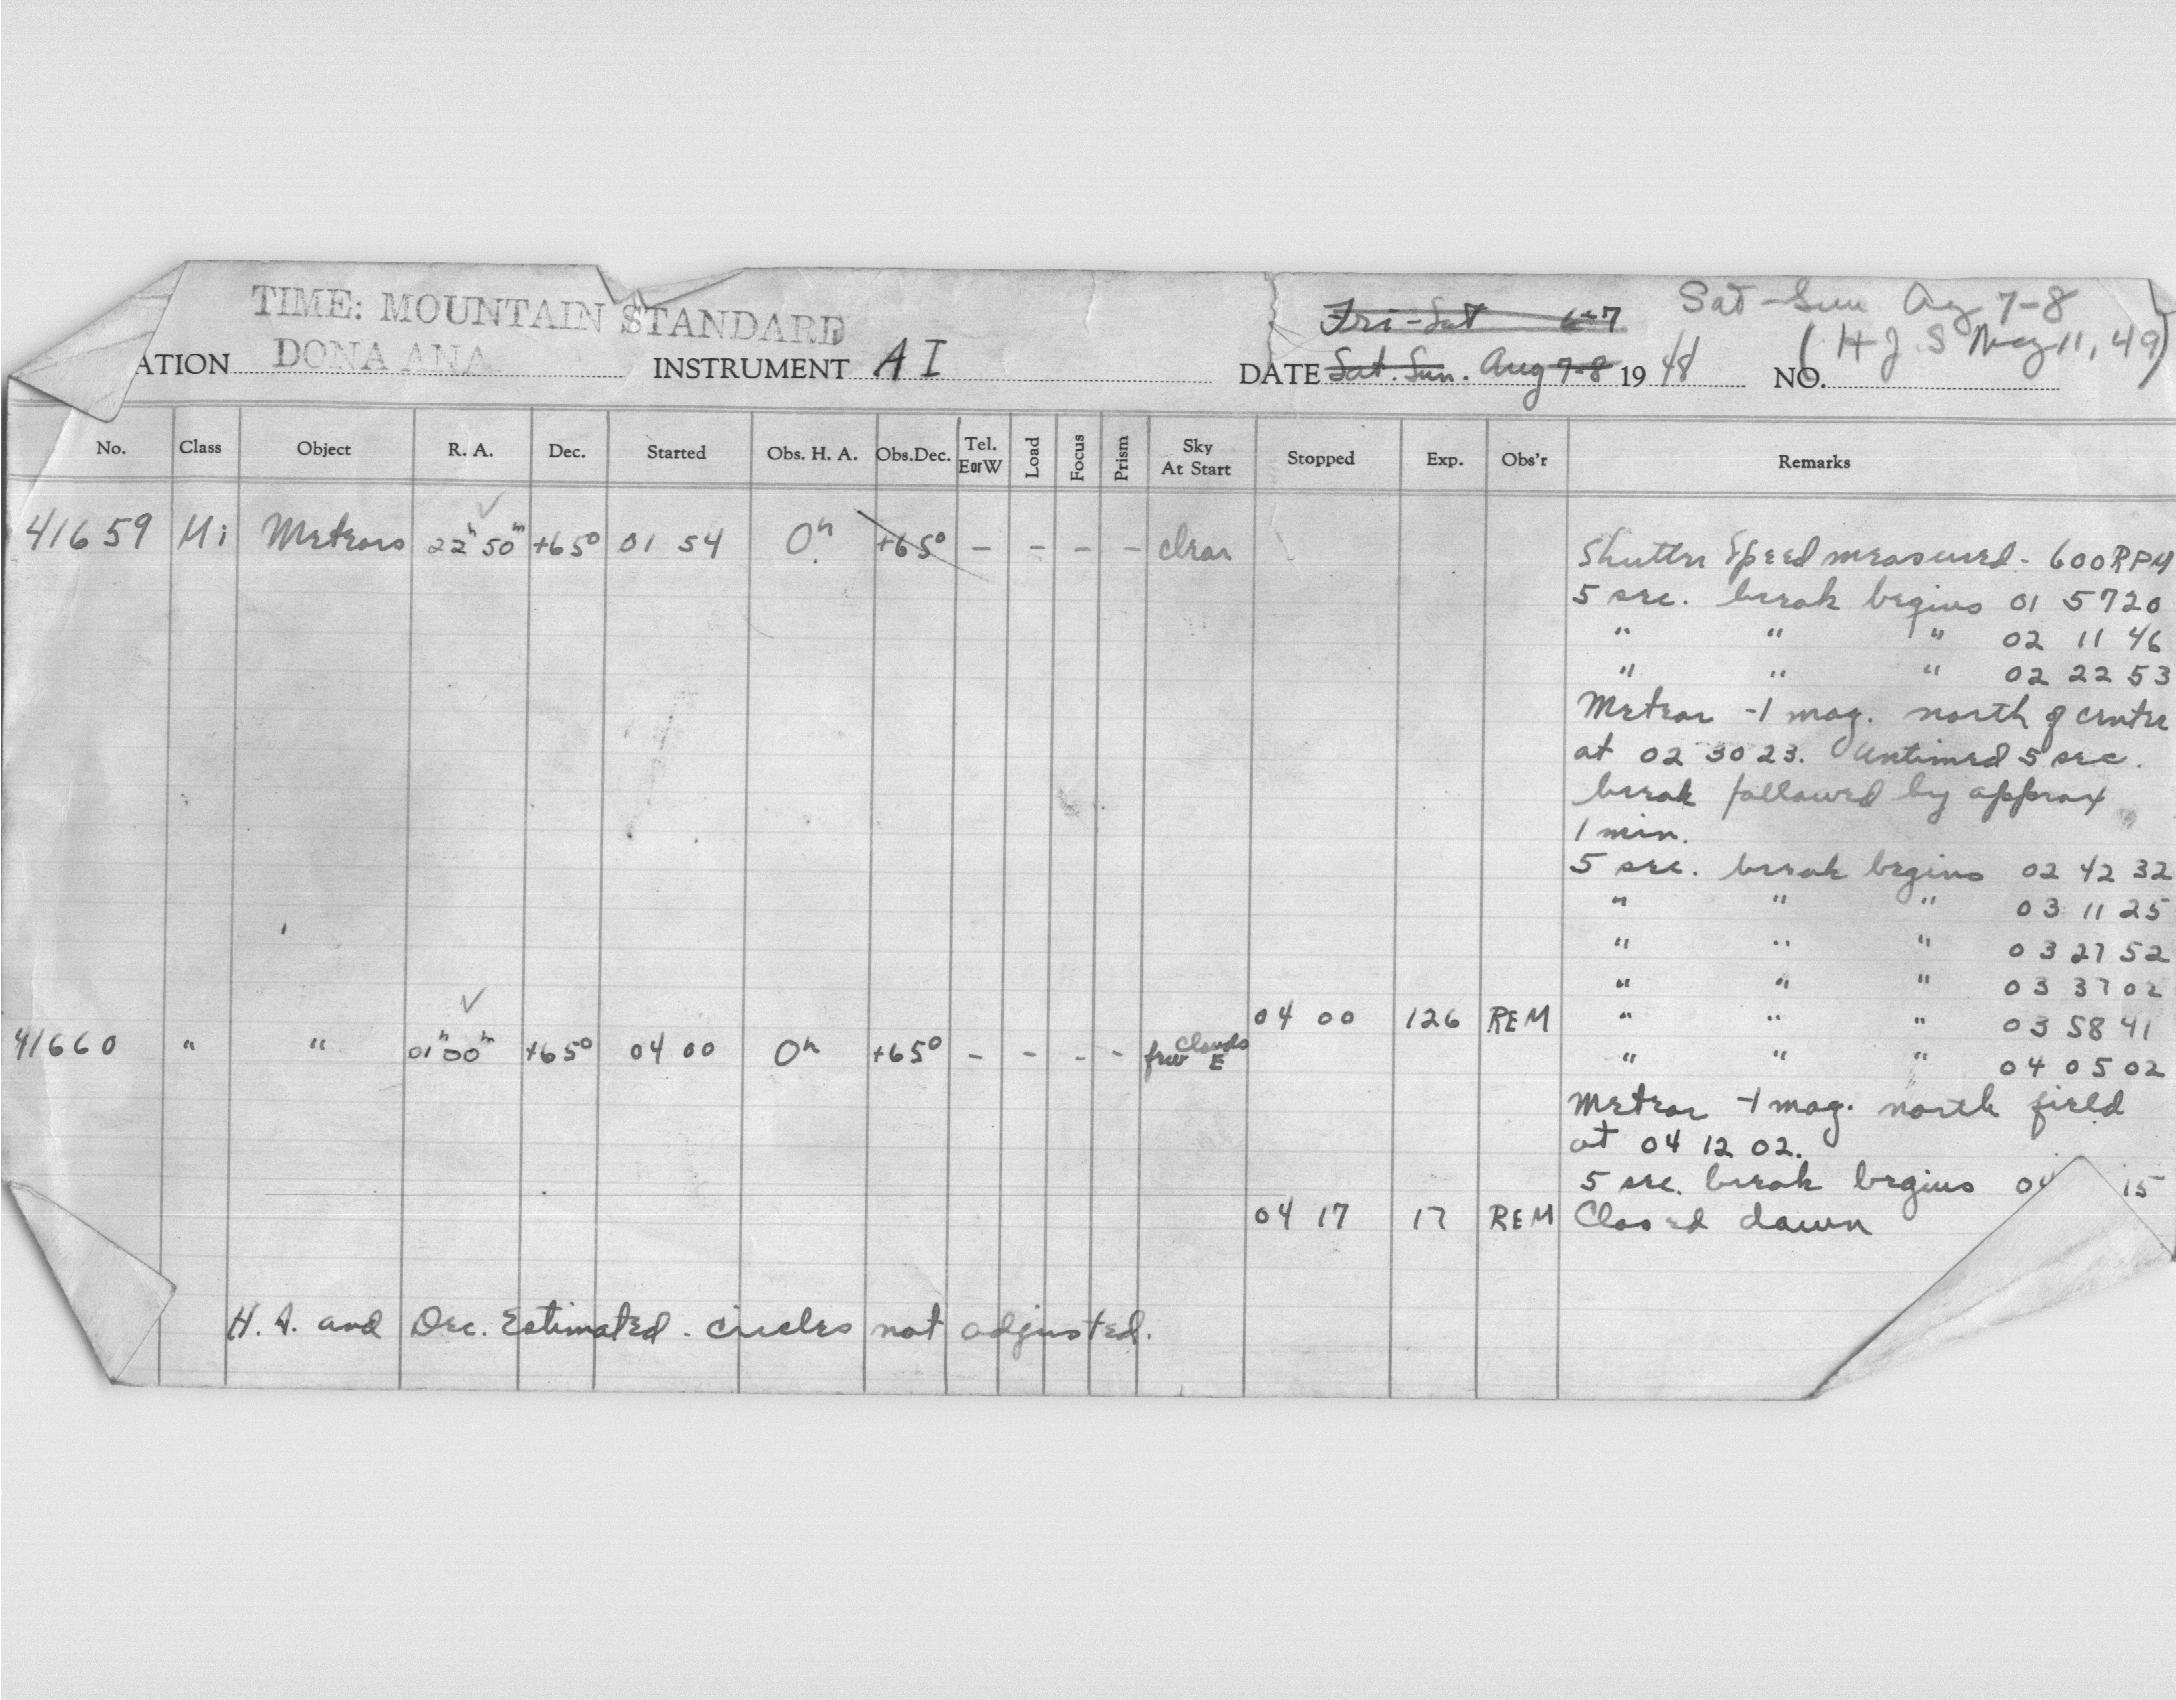 TIME: MOUNTAIN STANDARD
Fri-Sat 6-7 Sat-Sun Aug 7-8
ATION DONA ANA INSTRUMENT AI DATE Sat. Sun. Aug 7-8 1948 NO. (HJS May 11, 49)
No. Class Object R. A. Dec. Started Obs. H. A. Obs.Dec. Tel. E or W Load Focus Prism Sky At Start Stopped Exp. Obs'r Remarks
41659 Mi Meteors 22h 50m +65° 01 54 0h +65° - - - - clear Shutter Speed measured - 600 RPM
5 sec. break begins 01 57 20
" " " 02 11 46
" " " 02 22 53
Meteor -1 mag. north of center
at 02 30 23. Untimed 5 sec.
break followed by approx
1 min.
5 sec. break begins 02 42 32
" " " 03 11 25
" " " 03 27 52
" " " 03 37 02
04 00 126 REM " " " 03 58 41
41660 " " 01h 00m +65° 04 00 0h +65° - - - - few clouds E " " " 04 05 02
Meteor -1 mag. north field
at 04 12 02.
5 sec. break begins 04 15
04 17 17 REM Closed dawn
H. A. and Dec. Estimated. circles not adjusted.